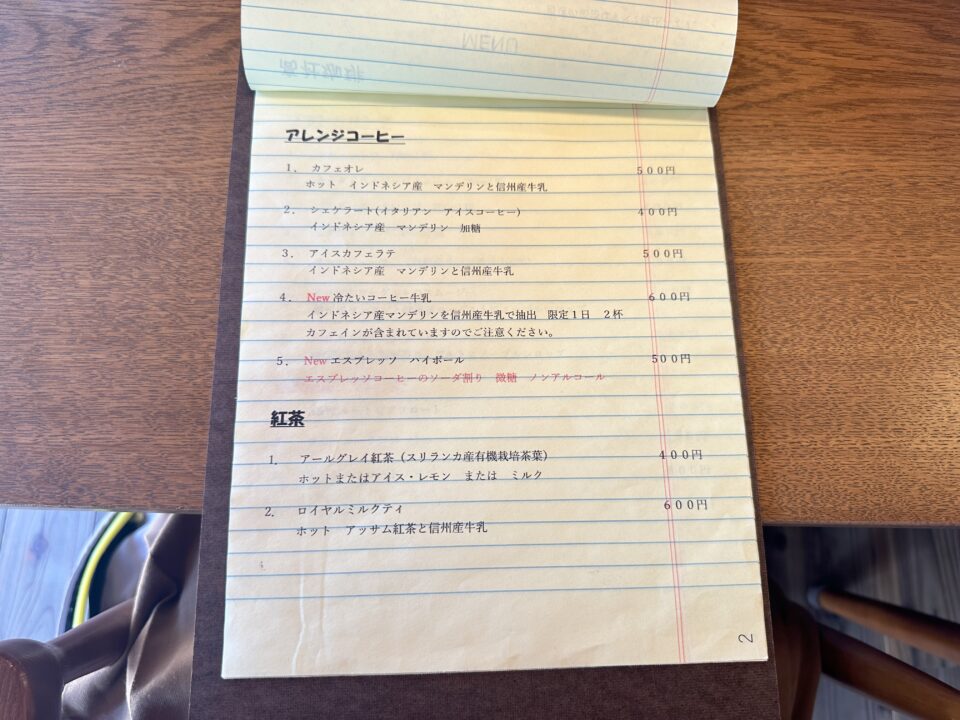 MENU
アレンジコーヒー
1. カフェオレ 500円
ホット インドネシア産 マンデリンと信州産牛乳
2. シェケラート(イタリアン アイスコーヒー) 400円
インドネシア産 マンデリン 加糖
3. アイスカフェラテ 500円
インドネシア産 マンデリンと信州産牛乳
4. New 冷たいコーヒー牛乳 600円
インドネシア産マンデリンを信州産牛乳で抽出 限定1日 2杯
カフェインが含まれていますのでご注意ください。
5. New エスプレッソ ハイボール 500円
エスプレッソコーヒーのソーダ割り 微糖 ノンアルコール
紅茶
1. アールグレイ紅茶(スリランカ産有機栽培茶葉) 400円
ホットまたはアイス・レモン または ミルク
2. ロイヤルミルクティ 600円
ホット アッサム紅茶と信州産牛乳
2